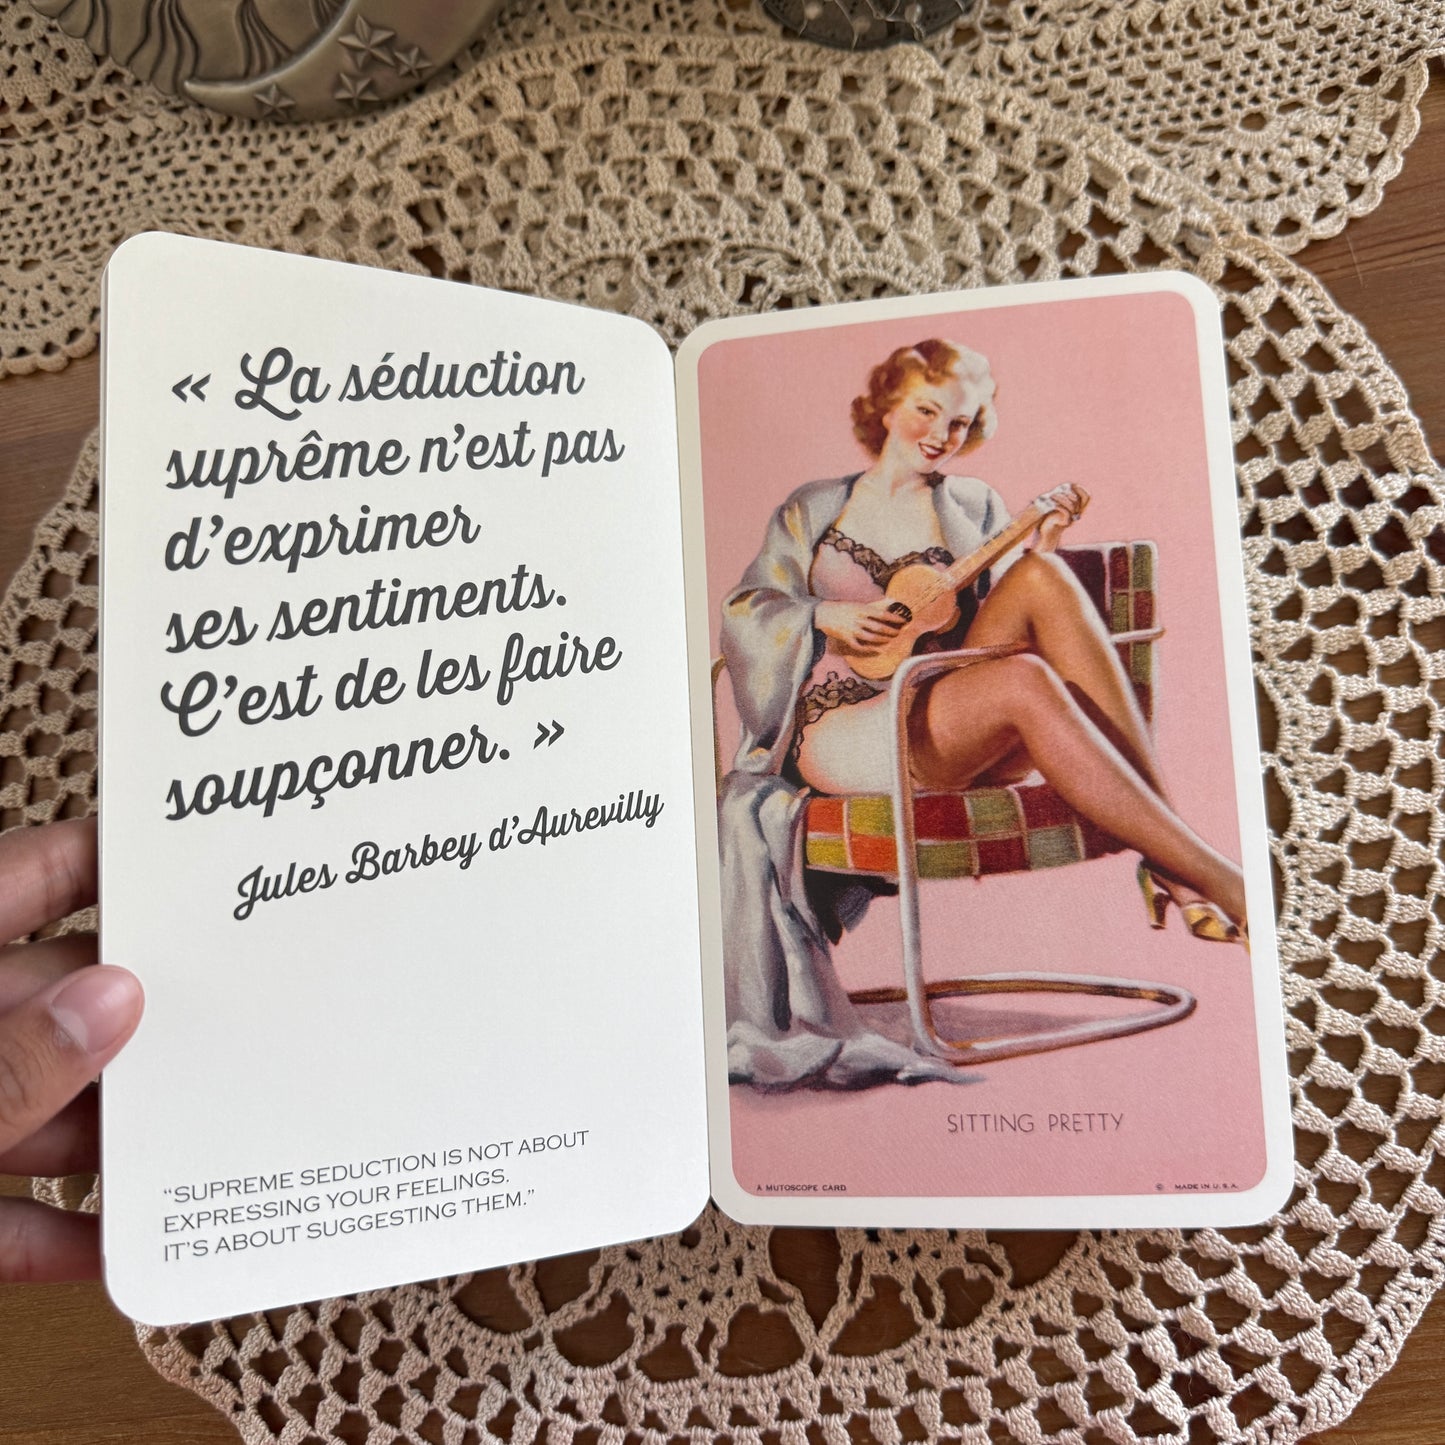 « La séduction
suprême n’est pas
d’exprimer
ses sentiments.
C’est de les faire
soupçonner. »
Jules Barbey d’Aurevilly
“SUPREME SEDUCTION IS NOT ABOUT
EXPRESSING YOUR FEELINGS.
IT’S ABOUT SUGGESTING THEM.”
SITTING PRETTY
A MUTOSCOPE CARD
© MADE IN U.S.A.